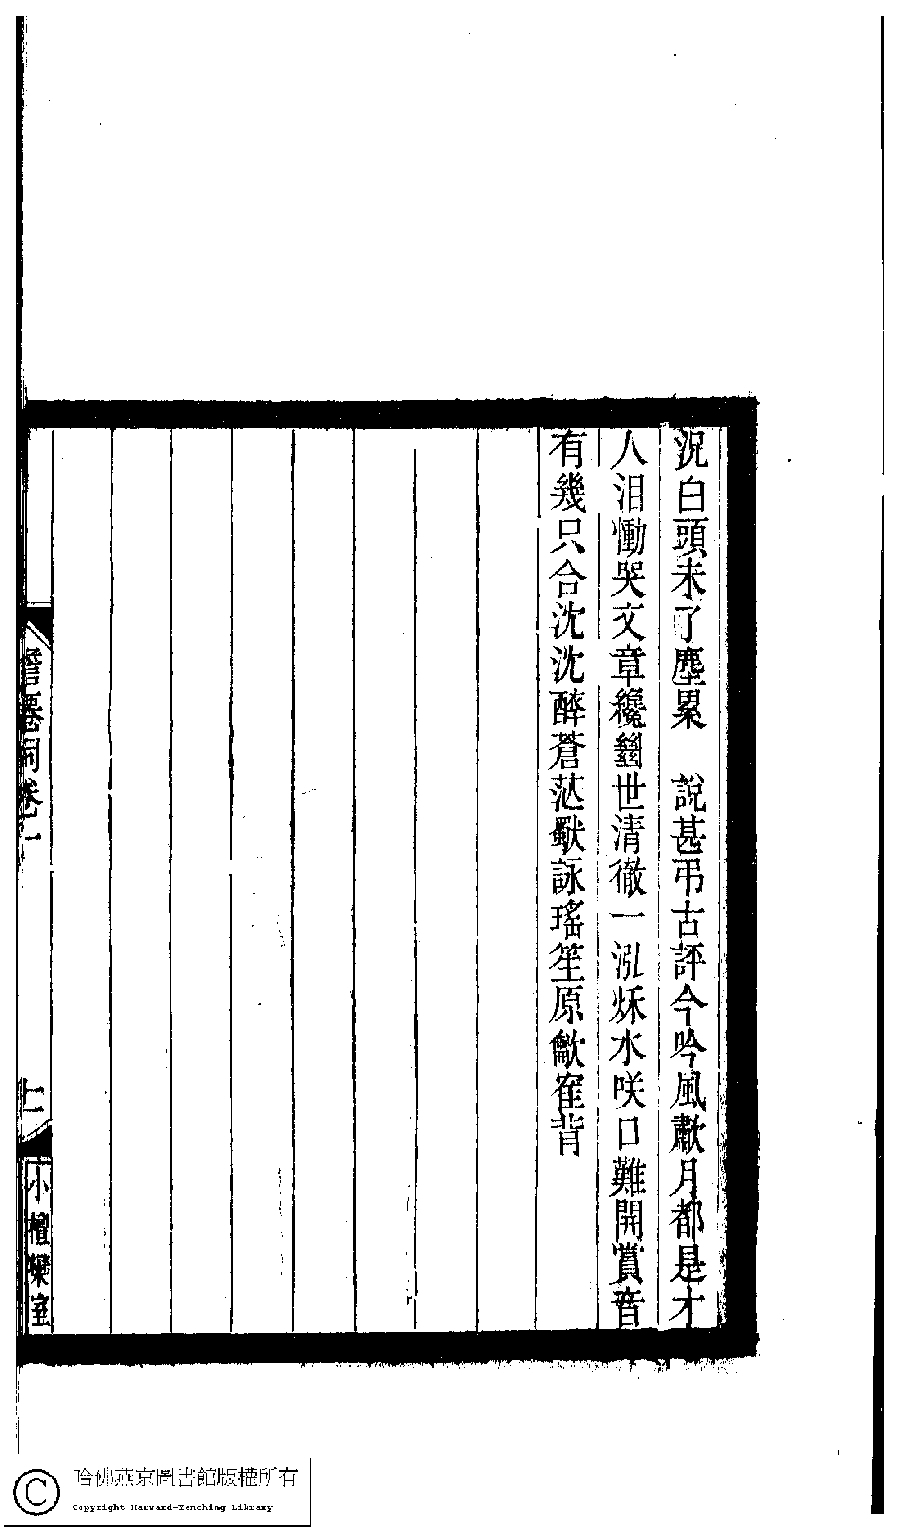 況白頭未了塵累　說甚弔古評今吟風歗月都是才
人泪慟哭文章纔䜌世清徹一泓秌水咲口難開賞音
有幾只合沈沈醉蒼茫獸詠瑤笙原歗寉背
詞卷一
七
小檀欒室
哈佛燕京圖書館版權所有
Copyright Harvard-Yenching Library